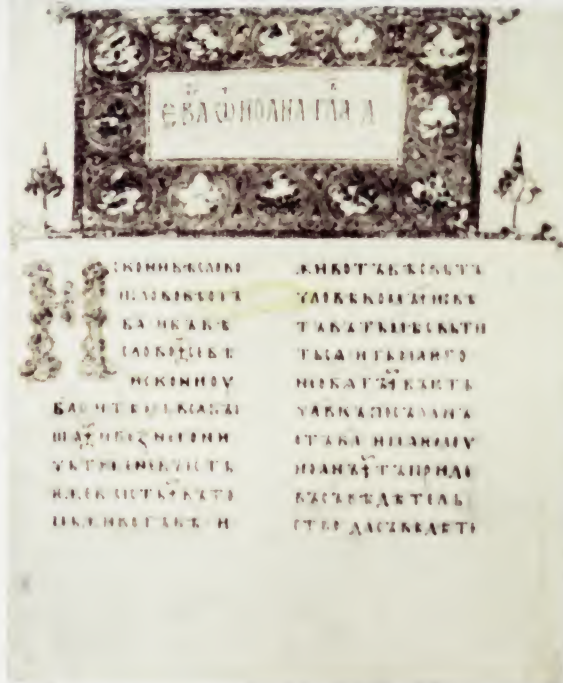 ЕВА Ѿ ИОАНА ГЛА А
ИСКОНИБѢСЛОВО
ИСЛОВОБѢОТЪ
БАИБЪБѢ
СЛОВОСЕБѢ
ИСКОНИОУ
БАИТѢМЬВЬСѦБЪІ
ШАИБЕЖНЕГОНИ
ЧЬТОЖЕНЕБЪІСТЬ
ЕЖЕБЪІСТЬВЪТО
МЬЖИВОТЪБѢИ
ЖИВОТЪБѢСВѢТЪ
ЧЛОВѢКОМЪИСВѢ
ТЪВЪТЬМѢСВѢТИ
ТЬСѦИТЬМАѤГО
НЕОБѦТЪБЪІСТЬ
ЧЛВКЪПОСЪЛАНЪ
ОТЪБАИМѦѤМОУ
ИОАНЪТЪПРИДЕ
ВЪСЪВѢДѢТЕЛЬ
СТВОДАСЪВѢДѢТЕ